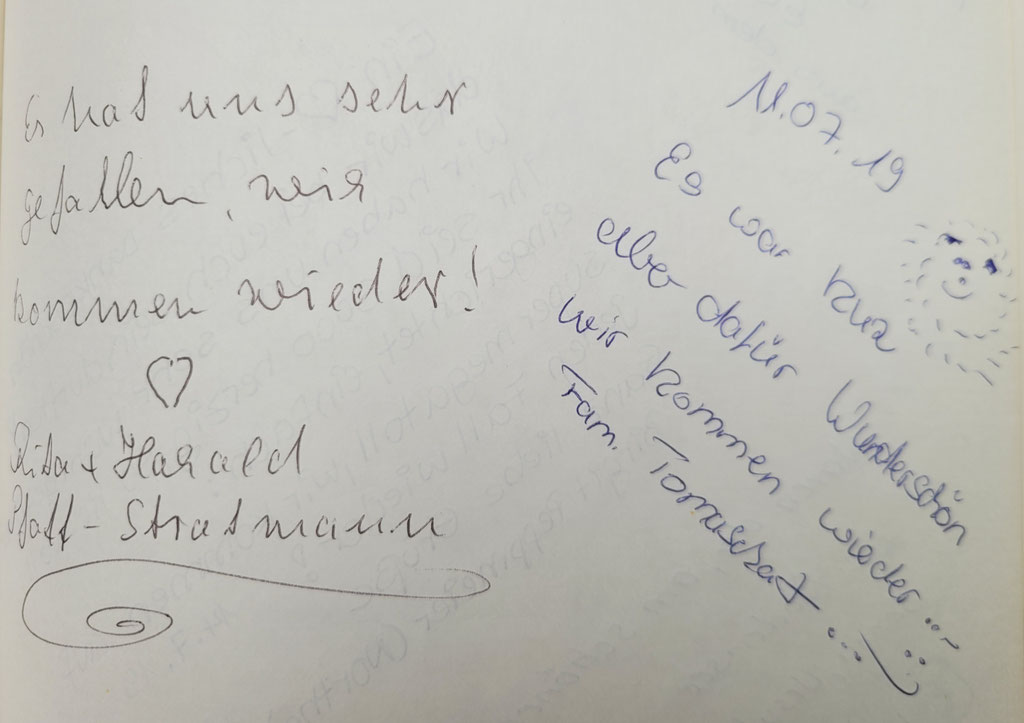 Es hat uns sehr
gefallen, wir
kommen wieder!
♡
Rita + Harald
Pfaff - Stratmann
11.07.19
Es war kurz
aber dafür Wunderschön
wir kommen wieder...
Fam. Tomaschat...